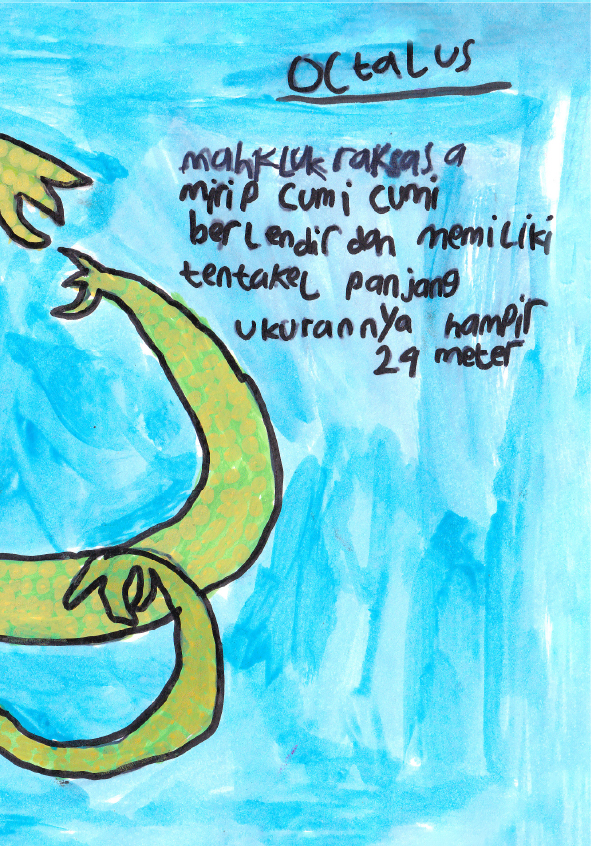 OCtaLus
mahkLuk raksasa
mirip Cumi Cumi
berLendir dan memiLiki
tentakeL panjang
ukurannya hampir
24 meter